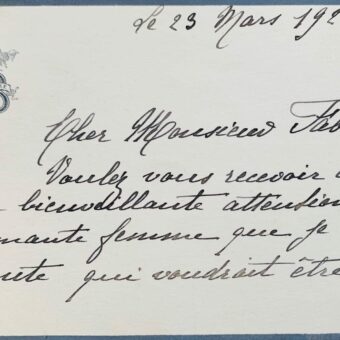 Le 23 Mars 192
Cher Monsieur Fab
Voulez vous recevoir
bienveillante attension
mante femme que je
nte qui voudrait être